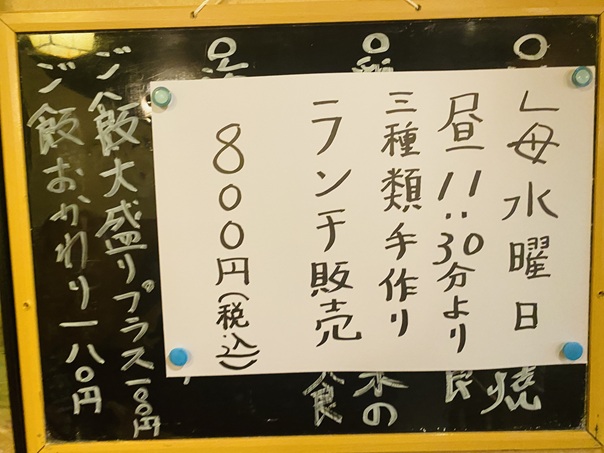 毎水曜日
昼11:30分より
三種類手作り
ランチ販売
800円(税込)
ご飯大盛りプラス100円
ご飯おかわり一八〇円